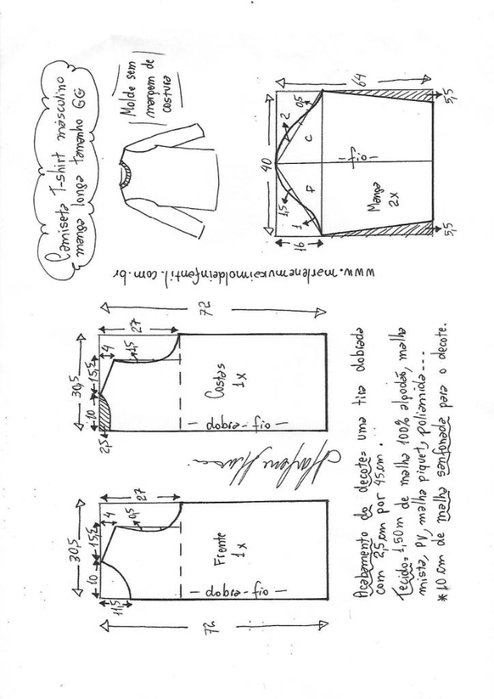 Camiseta T-shirt masculino
manga longa tamanho GG
Molde sem
margem de
costura
64
5,5
0,5
2
C
40
fio
F
Manga
2x
1,5
1
16
5,5
www.marlenemukaimoldeinfantil.com.br
72
27
4
1,5
30,5
15,5
10
2,5
Costas
1x
dobra-fio
Marlene Mukai
27
4
0,5
30,5
15,5
10
11,5
Frente
1x
dobra-fio
72
Acabamento do decote= uma tira dobrada
com 2,5cm por 45cm.
Tecido= 1,50m de malha 100% algodão, malha
mista, PV, malha piquet, poliamida...
*10 cm de malha sanfonada para o decote.